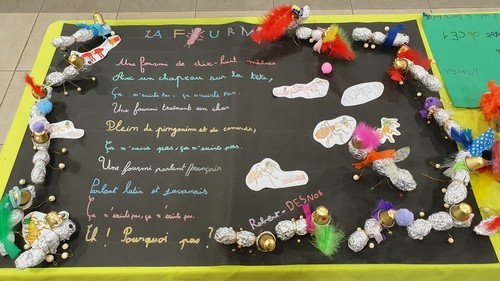 LA FOURMI
Une fourmi de dix-huit mètres
Avec un chapeau sur la tête,
Ça n'existe pas, ça n'existe pas.
Une fourmi traînant un char
Plein de pingouins et de canards,
Ça n'existe pas, ça n'existe pas.
Une fourmi parlant français
Parlant latin et javanais
Ça n'existe pas, ça n'existe pas.
Eh ! Pourquoi pas ?
Robert-DESNOS